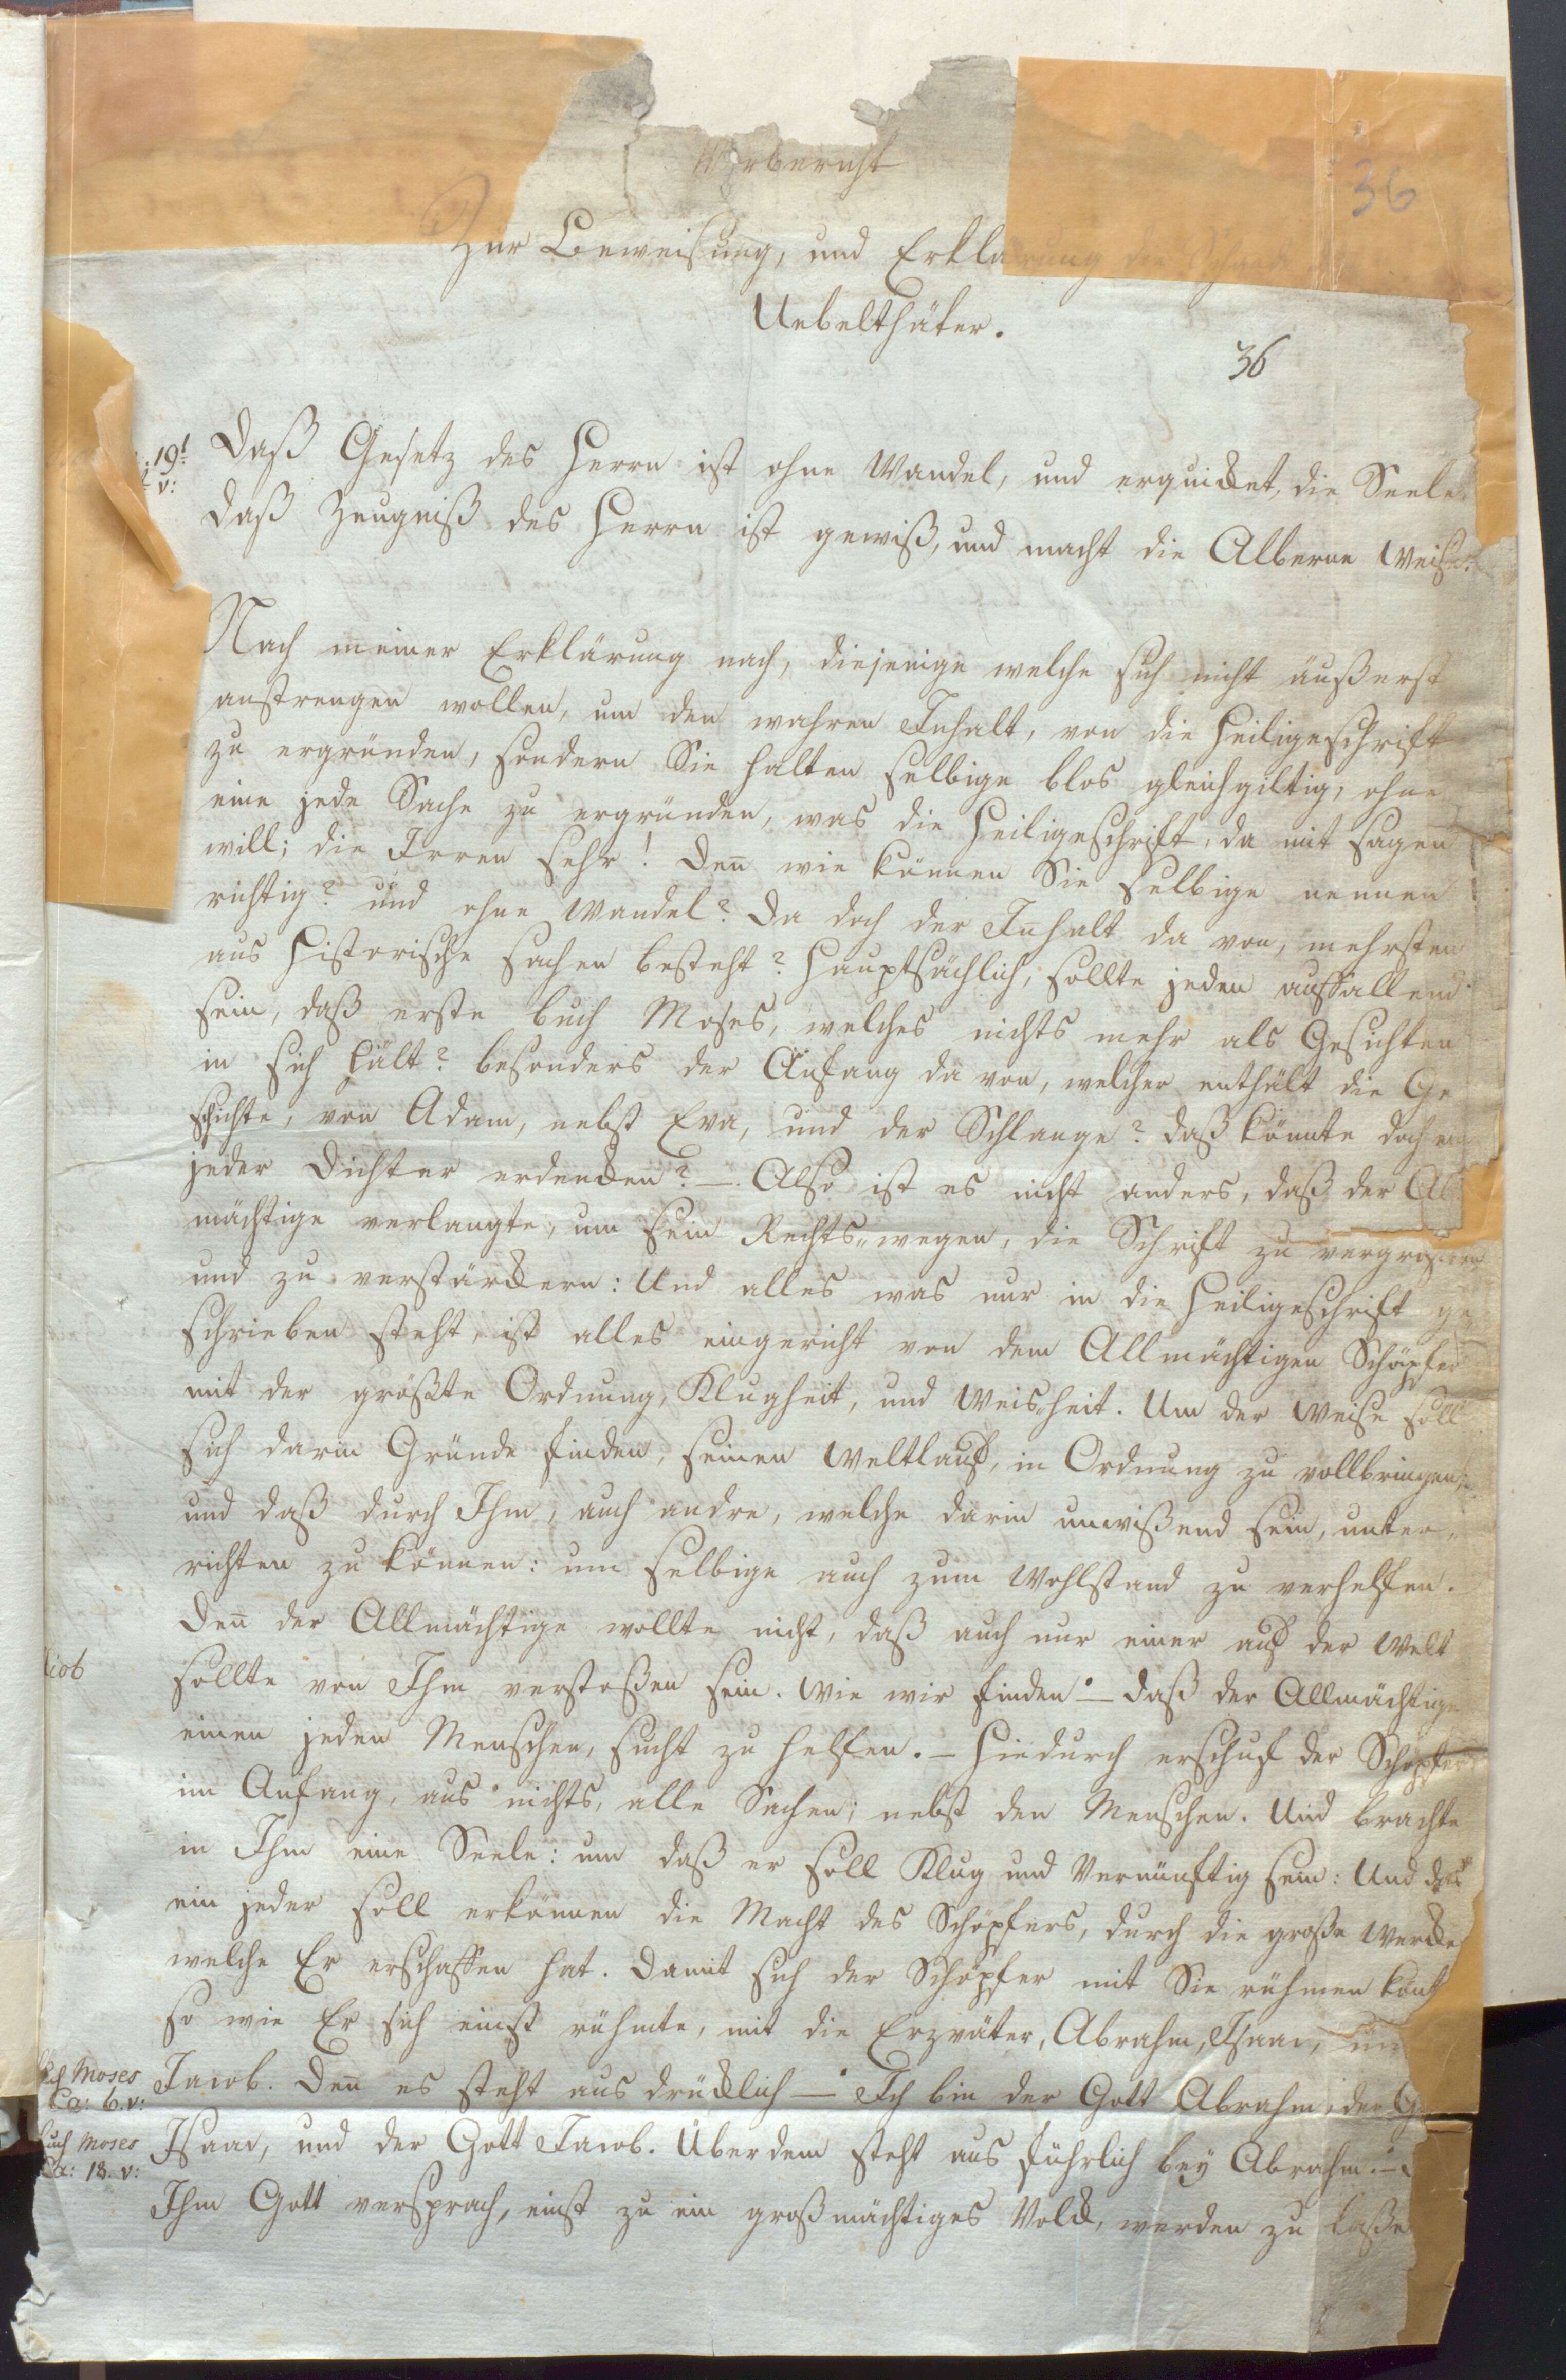 Vorbericht
36
Zur Beweisung, und Erklärung die
Uebelthäter.
36
19t
v:
Daß Gesetz des Herrn ist ohne Wandel, und erquicket, die Seele.
Daß Zeugniß des Herrn ist gewiß, und macht die Alberne Weise.
Nach meiner Erklärung nach, diejenige welche sich nicht äußerst
anstrengen wollen, um den wahren Inhalt, von die Heiligeschrift
zu ergründen, sondern Sie halten selbige blos gleichgiltig, ohne
eine jede Sache zu ergründen, was die Heiligeschrift, da mit sagen
will; die Irren sehr! Den̅ wie können Sie selbige nennen
richtig? und ohne Wandel? Da doch der Inhalt da von, mehrsten
aus Historische sachen besteht? Hauptsächlich, sollte jeden auffallend
sein, daß erste buch Moses, welches nichts mehr als Gesichten
in sich hält? besonders der Anfang da von, welcher enthält die Ge
schichte, von Adam, nebst Eva, und der Schlange? daß könnte doch ein
jeder Dichter erdencken? — Also ist es nicht anders, daß der All
mächtige verlangte, um sein Rechts„wegen, die Schrift zu vergrößern
und zu verstärckern: Und alles was nur in die Heiligeschrift ge„
schrieben steht, ist alles eingericht von dem Allmächtigen Schöpfer
mit der größte Ordnung, Klugheit, und Weisheit. Um der Weise soll
sich darin Gründe finden, seinen Weltlauf, in Ordnung zu vollbringen,
und daß durch Ihm, auch andre, welche darin unwißend sein, unter„
richten zu können: um selbige auch zum Wohlstand zu verhelfen.
Den̅ der Allmächtige wollte nicht, daß auch nur einer auf der Welt
Hiob
sollte von Ihm verstoßen sein. Wie wir finden — daß der Allmächtige
einen jeden Menschen, sucht zu helfen. — Hiedurch erschuf der Schöpfer
im Anfang, aus nichts, alle Sachen; nebst den Menschen. Und brachte
in Ihm eine Seele: um daß er soll Klug und Vernünftig sein: Und daß
ein jeder soll erkönnen die Macht des Schöpfers, durch die große Wercke
welche Er erschaffen hat. Damit sich der Schöpfer mit Sie rühmen könt
so wie Er sich einst rühmte, mit die Erzväter, Abrahm, Isaac, und
buch Moses
Ca: 6. v:
Jacob. Den̅ es steht aus drücklich — Ich bin der Gott Abrahm, der G
buch Moses
Ca: 18. v:
Isaac, und der Gott Jacob. Überdem steht aus führlich bey Abrahm. —
Ihm Gott versprach, einst zu ein großmächtiges Volck, werden zu laße